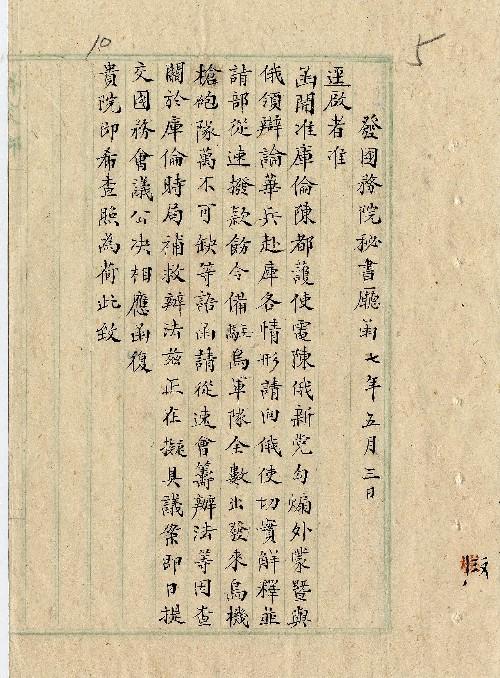 5
發國務院秘書廳 七年五月三日
逕啟者准
函開准庫倫陳都護使電陳俄新党勾煽外蒙暨與
俄領辯論華兵赴庫各情形請向俄使切實解釋並
請部從速撥款飭令備駐烏軍隊全數出發來烏機
槍砲隊萬不可缺等語函請從速會籌辦法等因查
關於庫倫時局補救辦法茲正在擬具議案即日提
交國務會議公決相應函復
貴院即希查照為荷此致
10